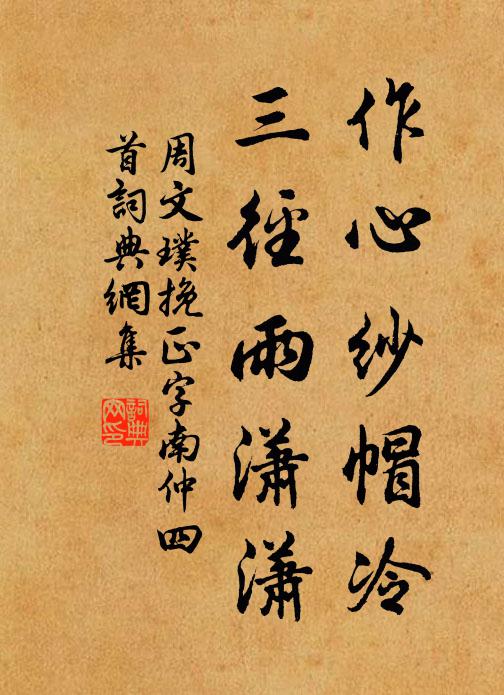 作心紗帽冷
三徑雨瀟瀟
周文璞挽正字南仲四
首詞典網集
詞典網印